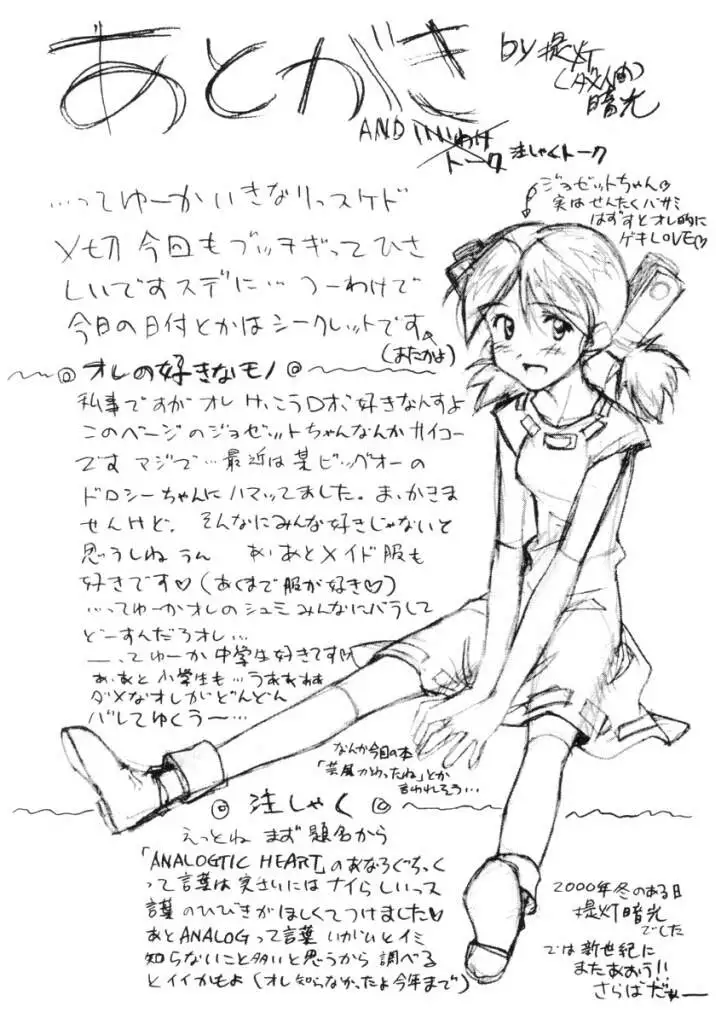 あとがき
by 提灯
暗光
AND
トーク 注しゃくトーク
ジョゼットちゃん♡
実はせんたくバサミ
はずすとオレ的に
ゲキLOVE♡
…ってゆーか いきなりっスケド
〆切 今回も ブッチギってひさ
しいです スデに… つーわけで
今日の日付とかはシークレットです。
◎ オレの好きなモノ ◎
私事ですが オレ けっこうロボ好きなんすよ
このページのジョゼットちゃんなんかサイコー
です マジで… 最近は某ビッグオーの
ドロシーちゃんにハマッてました。ま、かきま
せんけど。 そんなにみんな好きじゃないと
思うしね うん あ、あとメイド服も
好きです♡(あくまで服が好き♡)
…ってゆーかオレのシュミみんなにバラして
どーすんだろオレ…
――ってゆーか 中学生好きです♡
あ、あと小学生も…うああああ
ダメなオレがどんどん
バレてゆくぅ〜…
なんか今回の本
「芸風かわったね」とか
言われそう…
◎ 注しゃく ◎
えっとね まず題名から
「ANALOGTIC HEART」のあなろぐちっく
って言葉は実さいにはナイらしいっス
言葉のひびきがほしくてつけました♡
あとANALOGって言葉 いがいとイミ
知らないこと多いと思うから 調べる
とイイかもよ(オレ知らなかったよ今年まで)
2000年冬のある日
提灯暗光
でした
では新世紀に
またあおう!!
さらばだぁー